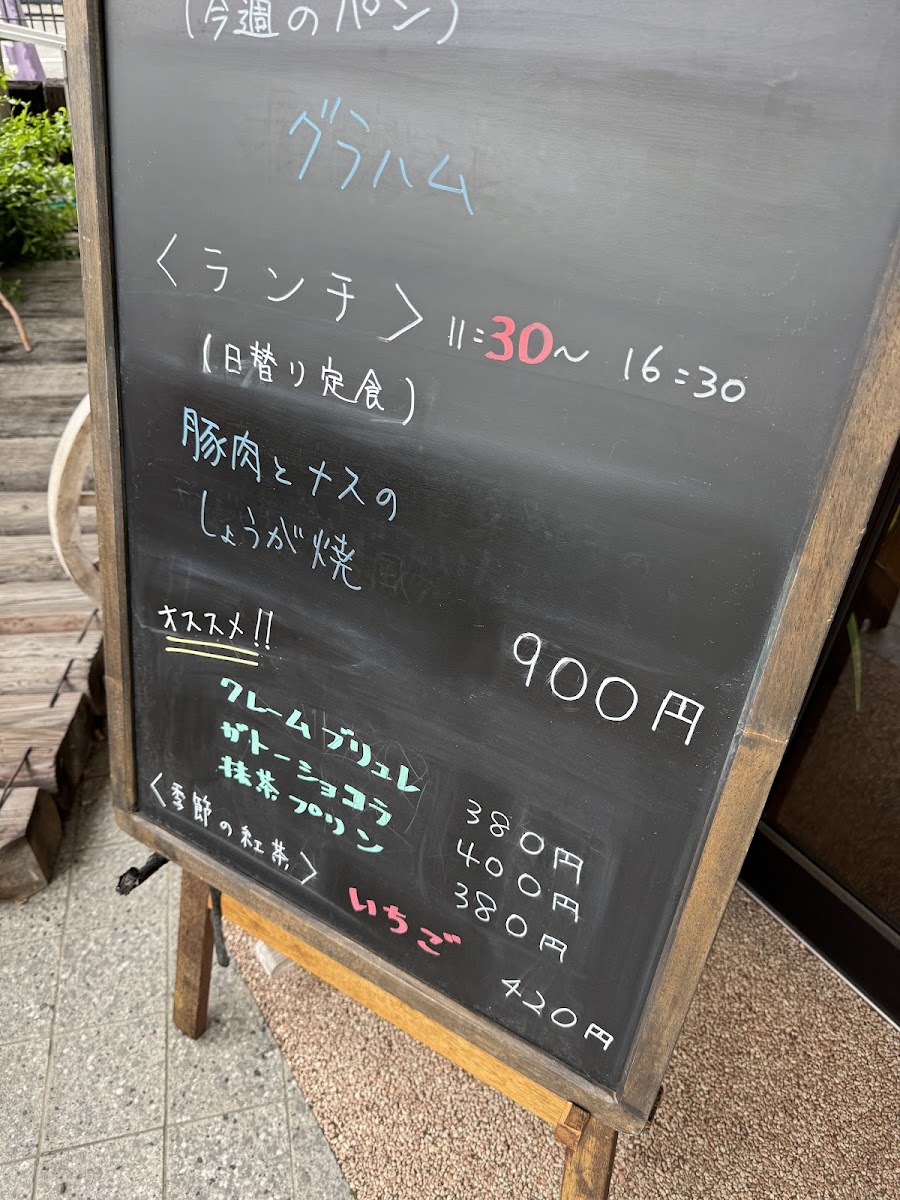 (今週のパン)
グラハム
〈ランチ〉 11:30〜 16:30
(日替り定食)
豚肉とナスの
しょうが焼
900円
オススメ!!
クレームブリュレ 380円
ガトーショコラ 400円
抹茶プリン 380円
〈季節の紅茶〉
いちご 420円